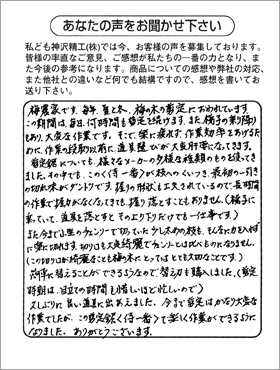 あなたの声をお聞かせ下さい
私ども神沢精工(株)では今、お客様の声を募集しております。
皆様の率直なご意見、ご感想が私たちの一番の力となり、ま
た今後の参考になります。商品についての感想や弊社の対応、
また他社との違いなど何でも結構ですので、感想を書いてお
送り下さい。
梅農家です。毎年、夏と冬、梅の木の剪定に追われています。
この時期は、毎日、何時間も剪定を続けます。また、梯子の乗り降り
もあり、大変な作業です。そこで、楽に疲れず作業効率をあげるた
めに、作業の段取り以前に道具選びが大変肝要になってきます。
剪定鋏についても、様々なメーカーの多種な種類のものを使ってき
ました。その中でも、このく侍一番〉が枝へのくいつき、最初の一引き
の切れ味がダントツです。握りの形状も工夫されているので、長時間
の作業で握力がなくなってきても、握り落とすこともありません。(梯子に
乗っていて、道具を落とすとその上り下りだけでも一仕事です)
また今まで小型のチェンソーで切っていた少し太めの枝も、そんなに力を入れず
に楽に切れます。切り口も大変綺麗でチェンソーとは比べものになりません。
(この切り口が綺麗なことも梅の木にとってはとても大切なことです。)
簡単に替えることができるようなので替え刃も購入しました。(剪定
時期は、目立ての時間も惜しいほど忙しいので)
久しぶりに良い道具に出あえました。今まで剪定はかなり大変な
作業でしたが、この剪定鋸〈侍一番〉で楽しく作業ができるように
なりました。ありがとうございます。